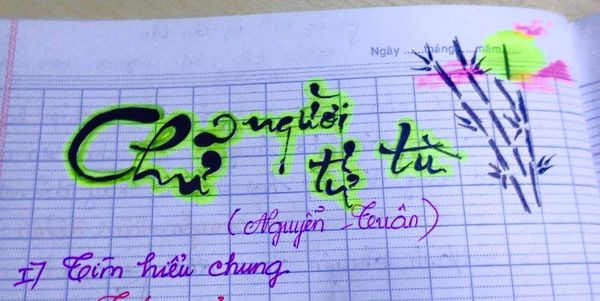 Ngày.....tháng.....năm.....
Chữ người tử tù
(Nguyễn Tuân)
I7 Tìm hiểu chung